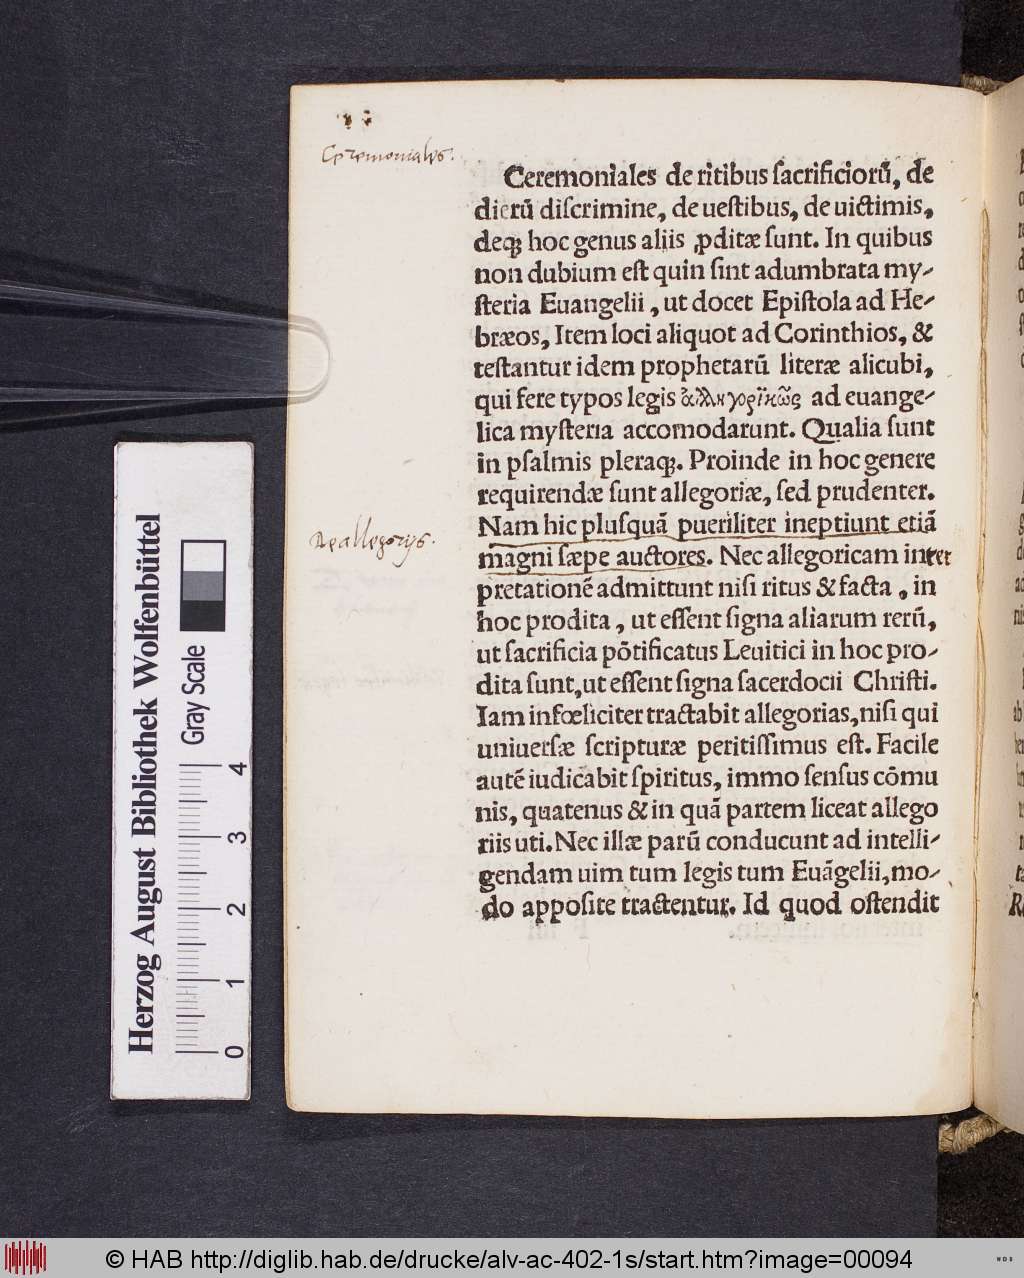 Ceremoniales.
Ceremoniales de ritibus ſacrificiorū, de
dierū diſcrimine, de ueſtibus, de uictimis,
deq; hoc genus aliis ꝓditæ ſunt. In quibus
non dubium eſt quin ſint adumbrata my-
ſteria Euangelii, ut docet Epiſtola ad He-
bræos, Item loci aliquot ad Corinthios, &
teſtantur idem prophetarū literæ alicubi,
qui fere typos legis ἀλληγορϊκῶς ad euange-
lica myſteria accomodarunt. Qualia ſunt
in pſalmis pleraq;. Proinde in hoc genere
requirendæ ſunt allegoriæ, ſed prudenter.
De allegorijs.
Nam hic pluſquā pueriliter ineptiunt etiā
magni ſæpe auctores. Nec allegoricam inter
pretationē admittunt niſi ritus & facta, in
hoc prodita, ut eſſent ſigna aliarum rerū,
ut ſacrificia pōtificatus Leuitici in hoc pro-
dita ſunt, ut eſſent ſigna ſacerdocii Chriſti.
Iam infœliciter tractabit allegorias, niſi qui
uniuerſæ ſcripturæ peritiſſimus eſt. Facile
autē iudicabit ſpiritus, immo ſenſus cōmu
nis, quatenus & in quā partem liceat allego
riis uti. Nec illæ parū conducunt ad intelli-
gendam uim tum legis tum Euāgelii, mo-
do appoſite tractentur. Id quod oſtendit
Herzog August Bibliothek Wolfenbüttel
Gray Scale
0 1 2 3 4
© HAB http://diglib.hab.de/drucke/alv-ac-402-1s/start.htm?image=00094